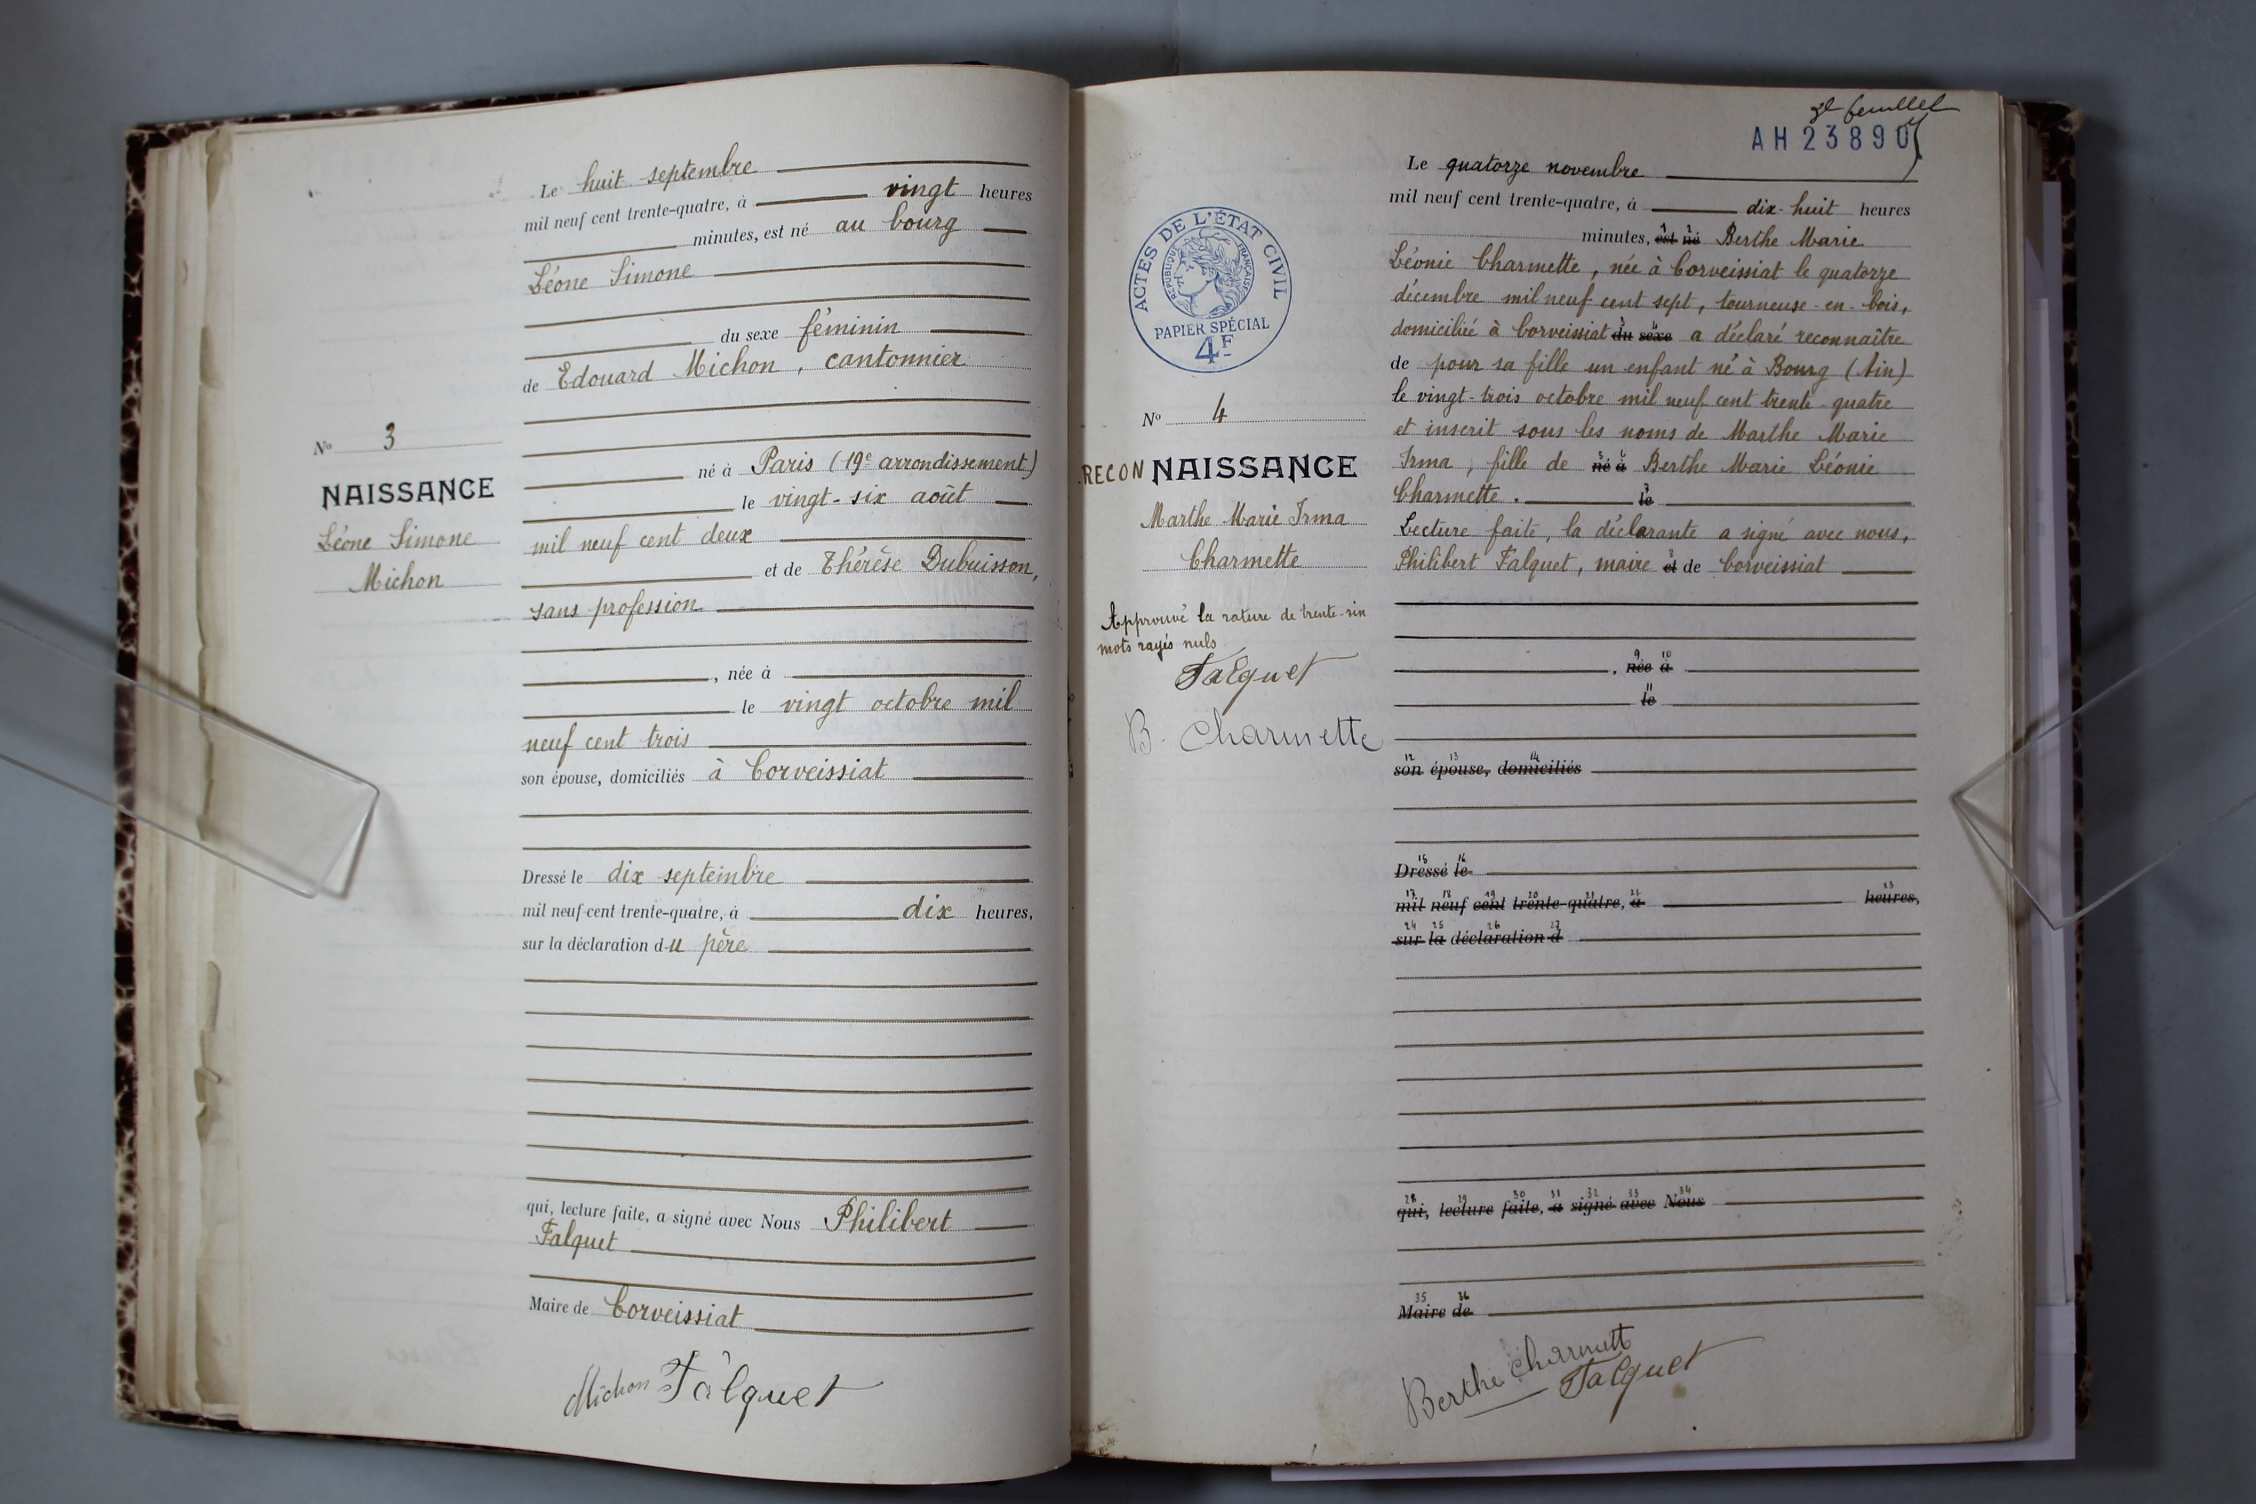 Le huit septembre
mil neuf cent trente-quatre, à vingt heures
minutes, est né au bourg
Léone Simone
du sexe féminin
de Edouard Michon, cantonnier
né à Paris (19e arrondissement)
le vingt-six août
mil neuf cent deux
et de Thérèse Dubuisson,
sans profession
, née à
le vingt octobre mil
neuf cent trois
son épouse, domiciliés à Corveissiat
Dressé le dix septembre
mil neuf cent trente-quatre, à dix heures,
sur la déclaration du père
qui, lecture faite, a signé avec Nous Philibert
Falquet
Maire de Corveissiat
Michon Falquet
No 3
NAISSANCE
Léone Simone
Michon
3e feuillet
AH 23890
ACTES DE L'ÉTAT CIVIL
RÉPUBLIQUE FRANÇAISE
PAPIER SPÉCIAL
4F
No 4
RECONNAISSANCE
Marthe Marie Irma
Charmette
Approuvé la rature de trente-six
mots rayés nuls
Falquet
B. Charmette
Le quatorze novembre
mil neuf cent trente-quatre, à dix-huit heures
minutes, est né Berthe Marie
Léonie Charmette, née à Corveissiat le quatorze
décembre mil neuf cent sept, tourneuse-en-bois,
domiciliée à Corveissiat du sexe a déclaré reconnaître
de pour sa fille un enfant né à Bourg (Ain)
le vingt-trois octobre mil neuf cent trente-quatre
et inscrit sous les noms de Marthe Marie
Irma, fille de né à Berthe Marie Léonie
Charmette. le
Lecture faite, la déclarante a signé avec nous,
Philibert Falquet, maire et de Corveissiat
, née à
le
son épouse, domiciliés
Dressé le
mil neuf cent trente-quatre, à heures,
sur la déclaration d
qui, lecture faite, a signé avec Nous
Maire de
Berthe Charmett
Falquet